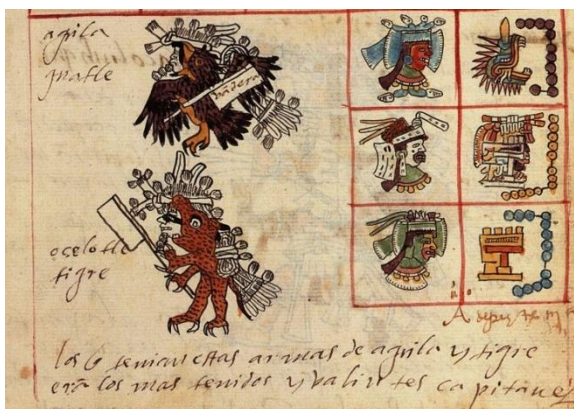 agila
quatle
vãdera
ocelotle
tigre
los q tenian estas armas de aguila y tigre
erã los mas temidos y valintes capitanes